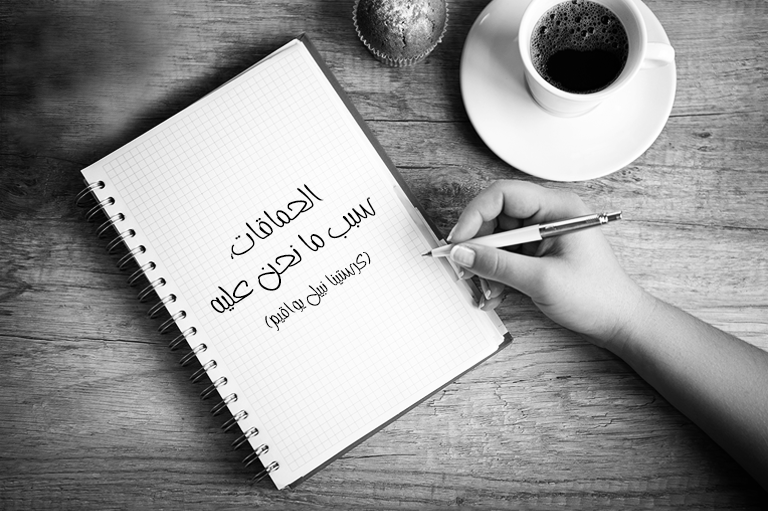 الحماقات،
سبب ما نحن عليه
(كرستينا نبيل يواقيم)